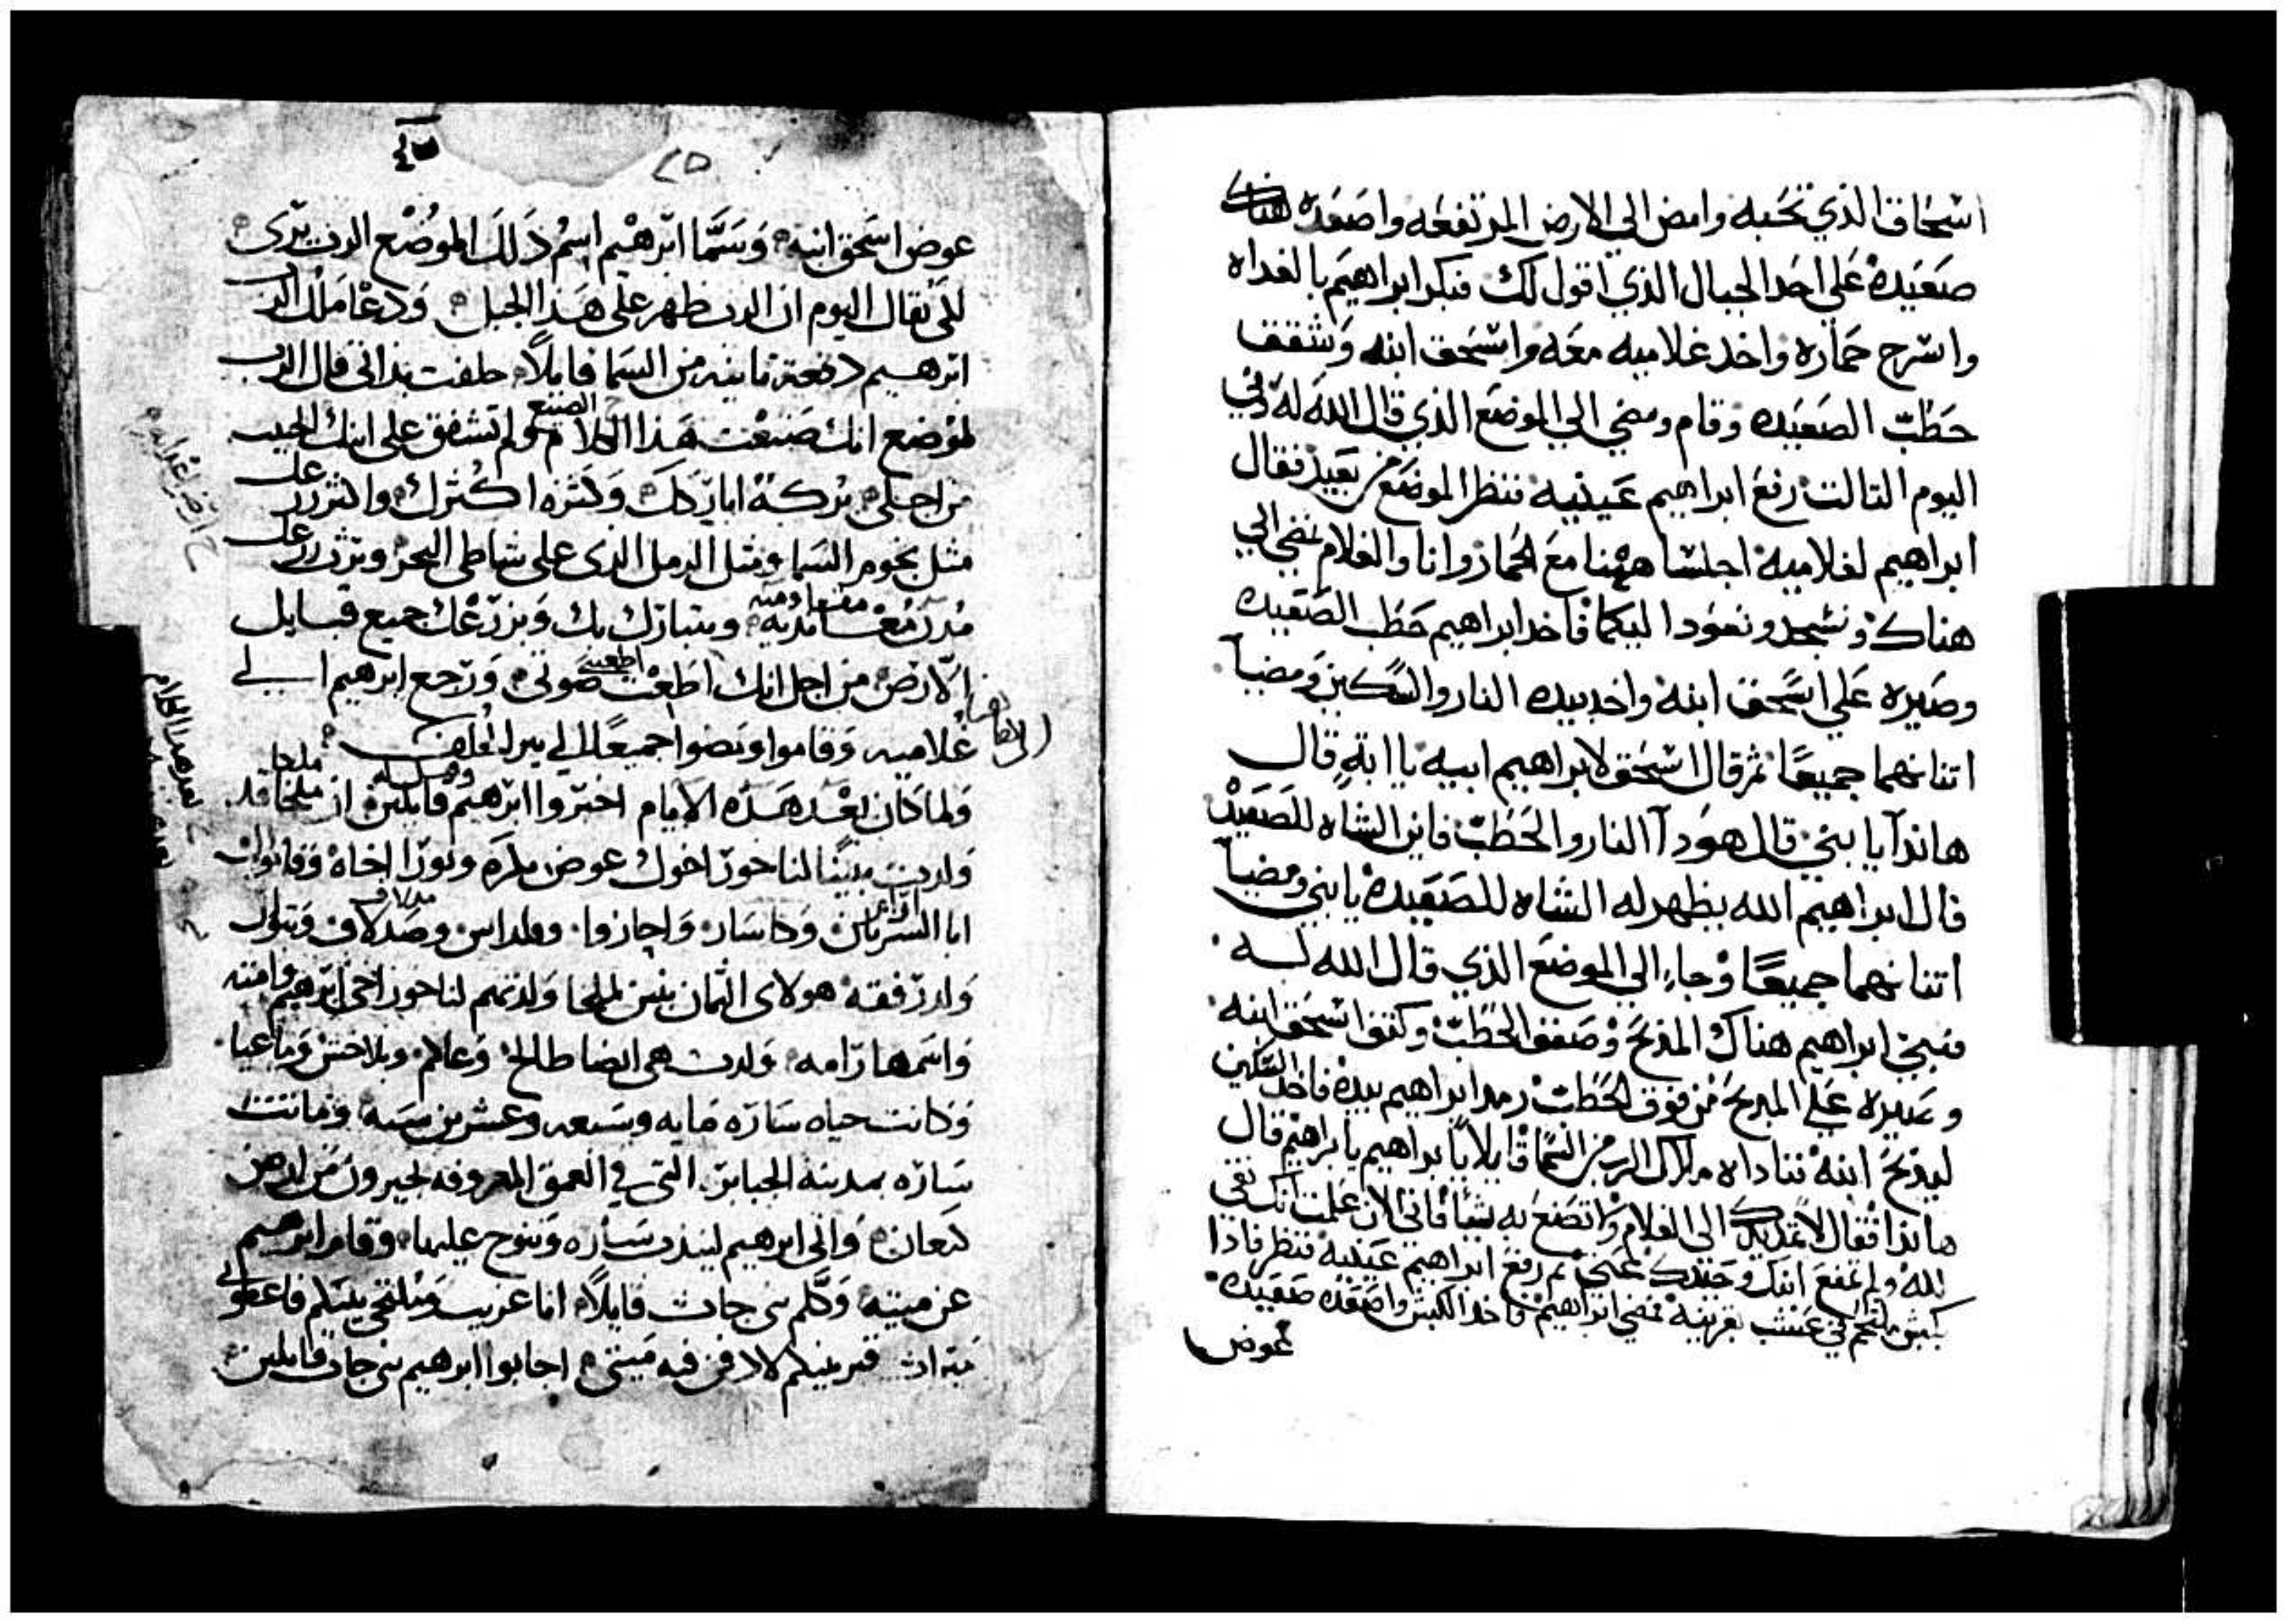 اسحاق الذي تحبه وامض الي الارض المرتفعه واصعده هناك
صعيده علي احد الجبال الذي اقول لك فبكر ابراهيم بالغداه
واسرج حماره واخد غلاميه معه واسحق ابنه وشقف
حطب الصعيده وقام ومضي الي الموضع الذي قال الله له وفي
اليوم التالت رفع ابراهيم عينيه فنظر الموضع من بعيد فقال
ابراهيم لغلاميه اجلسا ههنا مع الحمار وانا والغلام نمضي الي
هناك ونسجد ونعود اليكما فاخد ابراهيم حطب الصعيده
وصيره علي اسحق ابنه واخد بيده النار والسكين ومضيا
اتنانهما جميعا ثم قال اسحق لابراهيم ابيه يا ابة قال
هاندا يا بني قال هودا النار والحطب فاين الشاه للصعيد
قال ابراهيم الله يظهر له الشاه للصعيده يا بني ومضيا
اتنانهما جميعا وجاء الي الموضع الذي قال الله له
فبني ابراهيم هناك المذبح وصفف الحطب وكتف اسحق ابنه
وصيره علي المدبح من فوق الحطب ومد ابراهيم بيده فاخد السكين
ليدبح ابنه فناداه ملاك الرب من السما قايلا يا ابراهيم يا ابراهيم قال
هاندا فقال لا تمد يدك الي الغلام ولا تصنع به شيا فاني الان علمت انك تقي
لله ولم تمنع ابنك وحيدك عني ثم رفع ابراهيم عينيه فنظر فادا
بكبش ملتحم في عشب بقرنيه فمضي ابراهيم فاخد الكبش واصعده صعيده
عوض
٢٥
عوض اسحق ابنه وسما ابرهيم اسم دلك الموضع الرب يري
لكي يقال اليوم ان الرب ظهر علي هدا الجبل ودعا ملاك الرب
ابرهيم دفعة تانيه من السما قايلا حلفت بداتي قال الرب
الصنيع
لموضع انك صنعت هدا الكلام ولم تشفق علي ابنك الحبيب
من اجلي بركة اباركك وكثره اكثرك واكثر زرعك
مثل نجوم السما ومثل الرمل الذي علي شاطي البحر ويرث زرعك
مدن معانديه ويتبارك بك وبزرعك جميع قبايل
اطعت
الارض من اجل انك اطعت صوتي ورجع ابرهيم الي
غلاميه وقاموا ومضوا جميعا الي بير الحلف
ملحا
ولما كان بعد هده الايام اخبروا ابرهيم قايلين ان ملخا قد
ولدت بنينا لناحور اخوك عوض بكره وبوزا اخاه وقاموال
ابا السريانين وكاساد واجازوا وفلداس وصدلاف وبتوال
ولد رفقه هولاي التمان بنين لملخا ولدتهم لناحور اخي ابرهيم وامته
واسمها رامه ولدت هي ايضا طالخ وعاام وبلاخش وماعيا
وكانت حياه ساره مايه وسبعه وعشرين سنه وماتت
ساره بمدينه الجبابره التي في العمق المعروفه لحيرون من ارض
كنعان واتي ابرهيم ليندب ساره وينوح عليها وقام ابرهيم
عن ميته وكلم بني حات قايلا انا غريب وملتجي بينكم فاعطوني
ميراث قبر بينكم لادفن فيه ميتي اجابوا ابرهيم بني حات قايلين
بعد هدا الكلام